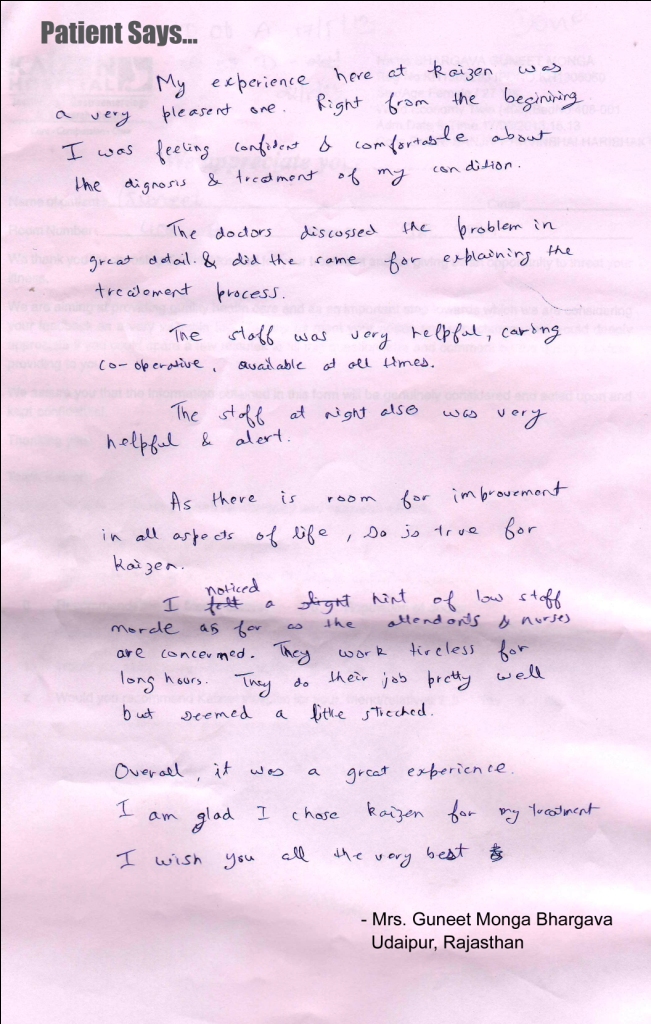 Patient Says...
My experience here at Kaizen was
a very pleasent one. Right from the beginining
I was feeling confident & comfortable about
the dignosis & treatment of my condition.
The doctors discussed the problem in
great detail & did the same for explaining the
treatoment process.
The staff was very helpful, caring
co-operative, available at all times.
The staff at night also was very
helpful & alert.
As there is room for improvement
in all aspects of life, so is true for
Kaizen.
noticed
I felt a slight hint of low staff
morale as far as the attendants & nurses
are concerned. They work tireless for
long hours. They do their job pretty well
but seemed a little streched.
Overall, it was a great experience.
I am glad I chose Kaizen for my treatment
I wish you all the very best
- Mrs. Guneet Monga Bhargava
Udaipur, Rajasthan